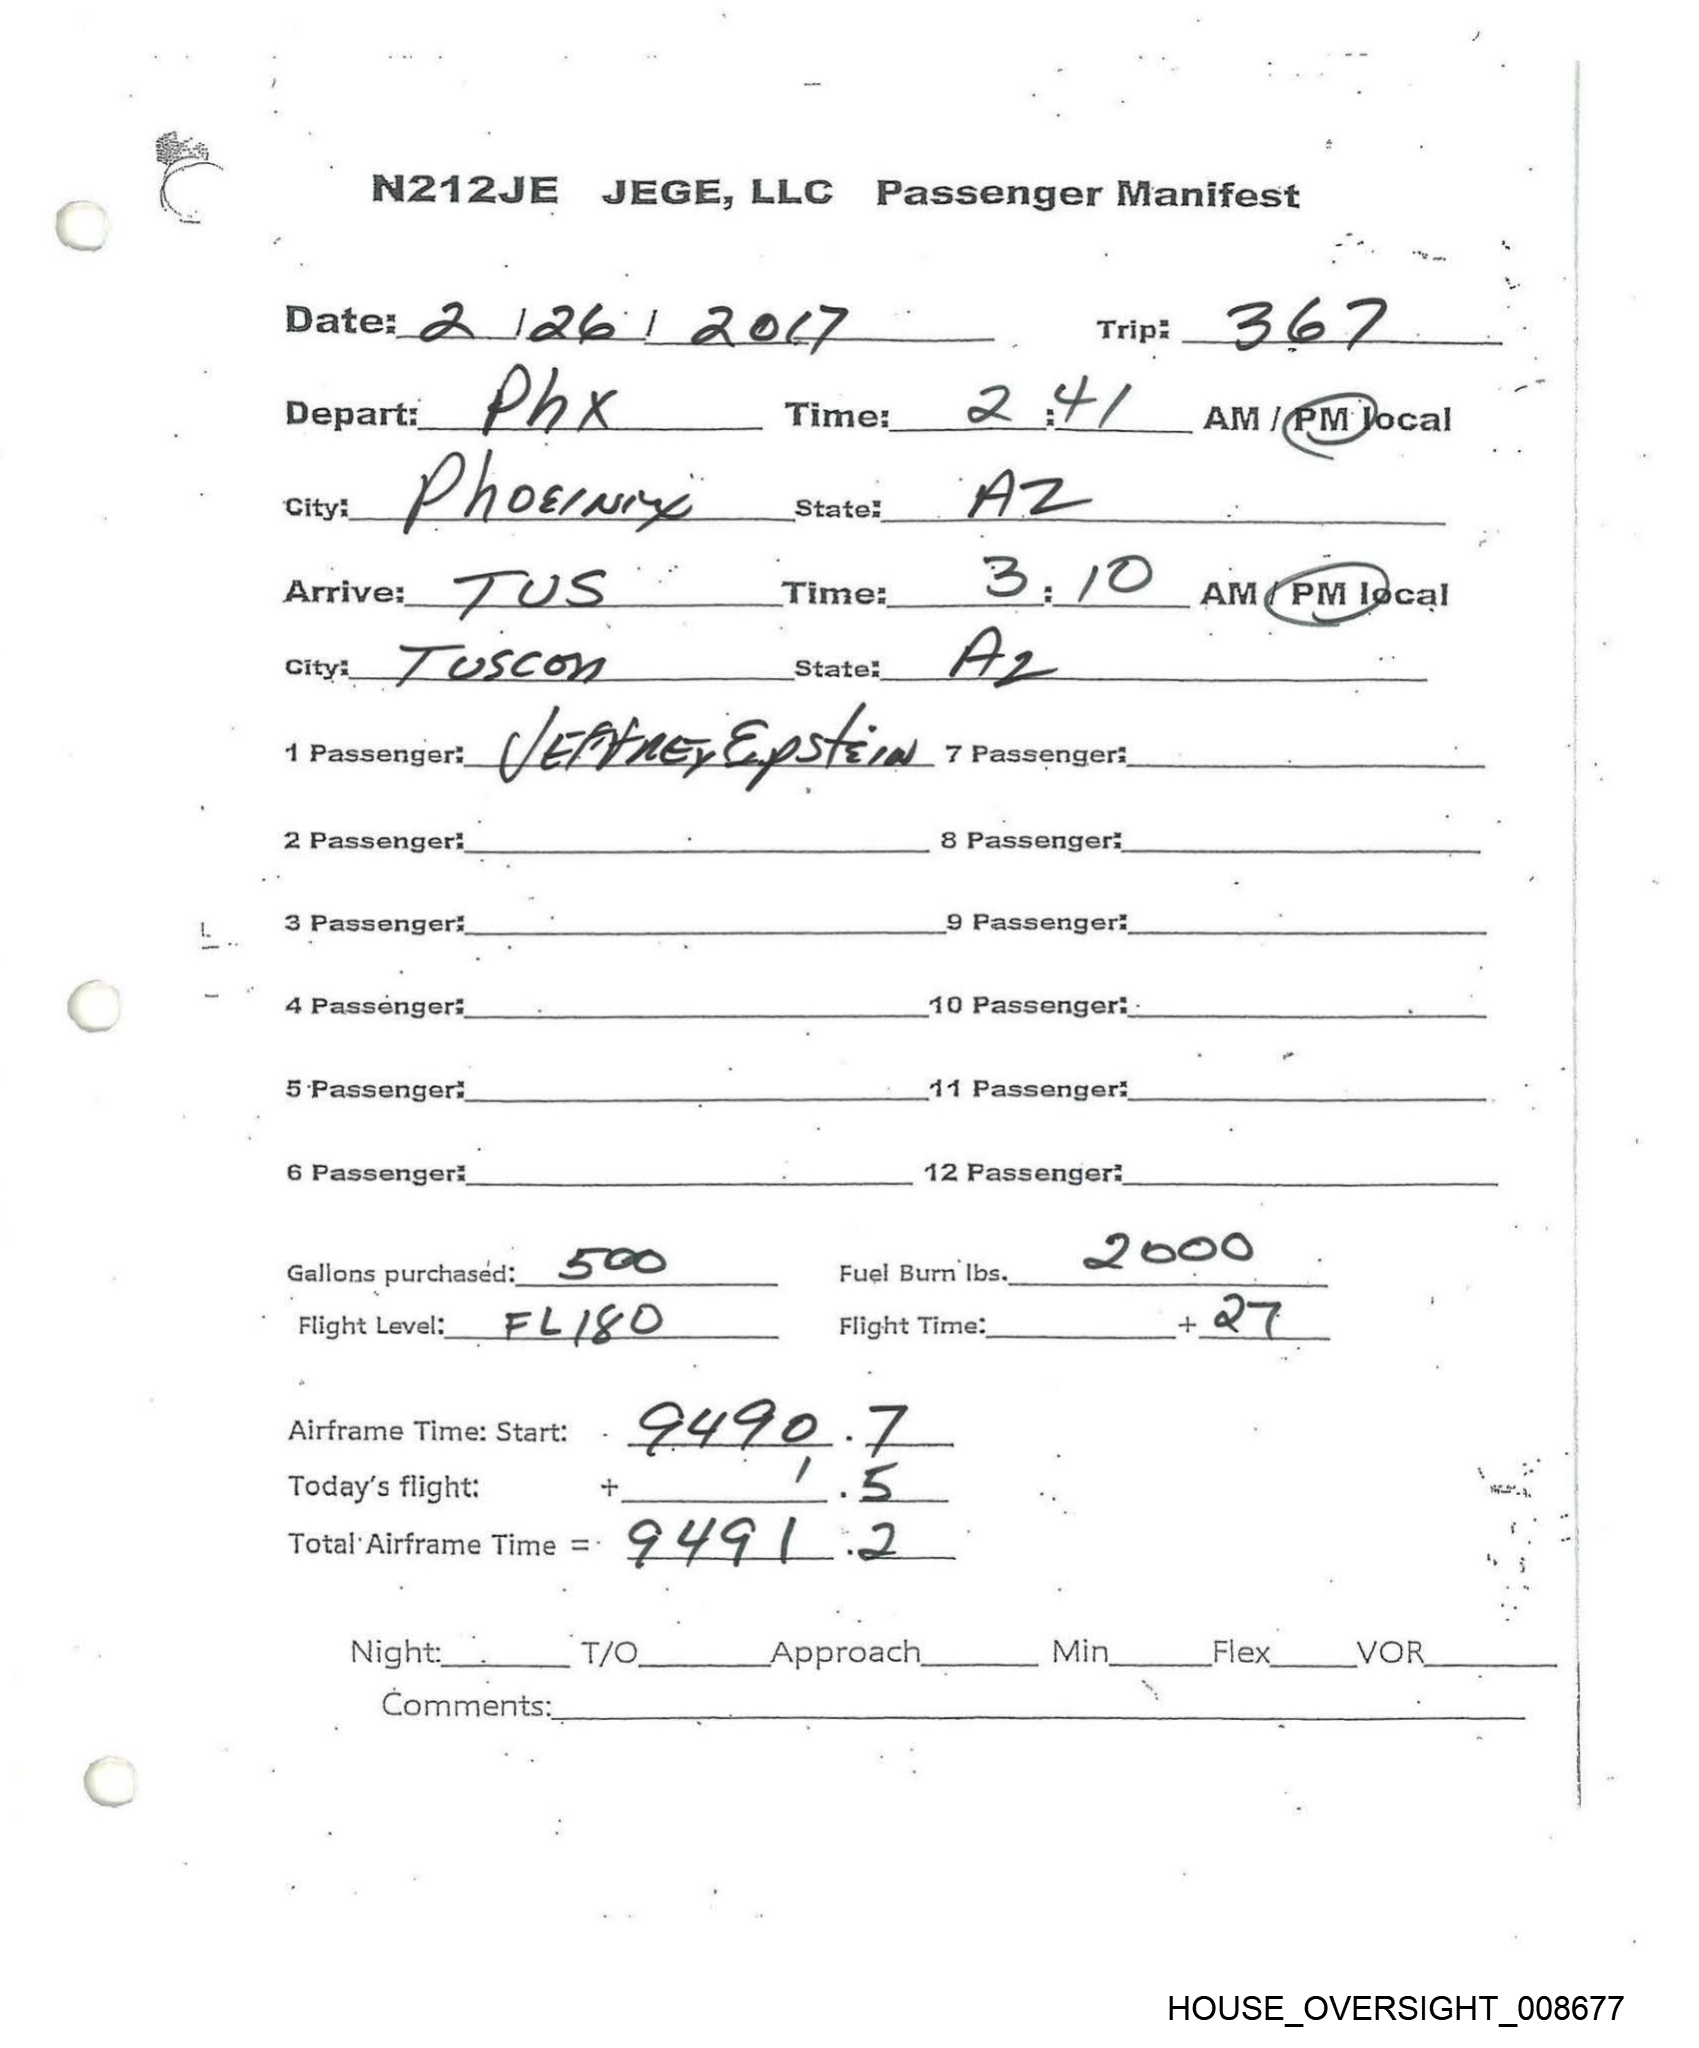 N212JE JEGE, LLC Passenger Manifest
Date: 2 / 26 / 2017 Trip: 367
Depart: Phx Time: 2 : 41 AM / PM local
City: PhOEINIX State: AZ
Arrive: TUS Time: 3 : 10 AM / PM local
City: TUSCON State: AZ
1 Passenger: JEFFREY Epstein 7 Passenger:
2 Passenger: 8 Passenger:
3 Passenger: 9 Passenger:
4 Passenger: 10 Passenger:
5 Passenger: 11 Passenger:
6 Passenger: 12 Passenger:
Gallons purchased: 500 Fuel Burn lbs. 2000
Flight Level: FL180 Flight Time: + 27
Airframe Time: Start: 9490 . 7
Today's flight: + 1 . 5
Total Airframe Time = 9491 . 2
Night: T/O Approach Min Flex VOR
Comments:
HOUSE_OVERSIGHT_008677